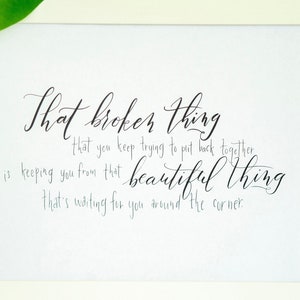 That broken thing
that you keep trying to put back together
is keeping you from that beautiful thing
that's waiting for you around the corner.